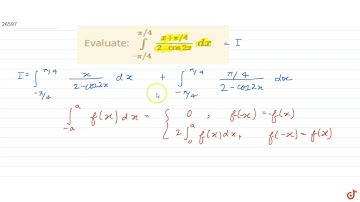 26597
Evaluate: ∫_{-π/4}^{π/4} (x+π/4)/(2-cos2x) dx = I
I = ∫_{-π/4}^{π/4} x/(2-cos2x) dx + ∫_{-π/4}^{π/4} (π/4)/(2-cos2x) dx
∫_{-a}^{a} f(x) dx = { 0, f(-x) = -f(x)
2∫_{0}^{a} f(x) dx, f(-x) = f(x)